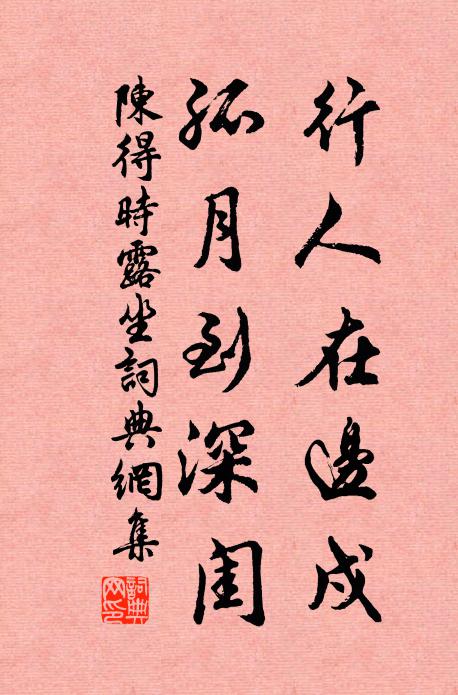 行人在邊戍
孤月到深閨
陳得時露坐詞典網集
詞典網印